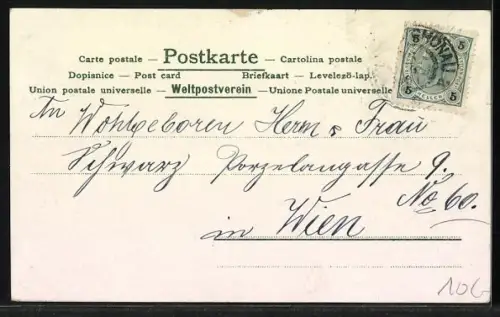 Carte postale — Postkarte — Cartolina postale
Dopisnice — Post card Briefkaart — Levelező-lap.
Union postale universelle — Weltpostverein — Unione Postale universelle
5 5
5 5
An Wohlgeboren Herrn & Frau
Schwarz Porzelangasse 9.
No 60.
in Wien